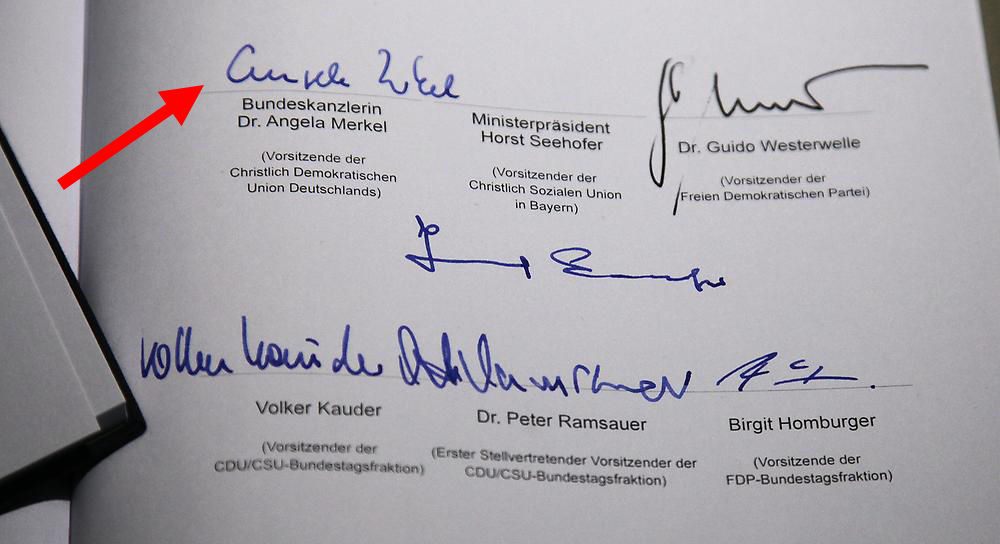 Angela Merkel
Bundeskanzlerin
Dr. Angela Merkel
(Vorsitzende der
Christlich Demokratischen
Union Deutschlands)
Ministerpräsident
Horst Seehofer
(Vorsitzender der
Christlich Sozialen Union
in Bayern)
Dr. Guido Westerwelle
(Vorsitzender der
Freien Demokratischen Partei)
Volker Kauder
Volker Kauder
(Vorsitzender der
CDU/CSU-Bundestagsfraktion)
Dr. Peter Ramsauer
(Erster Stellvertretender Vorsitzender der
CDU/CSU-Bundestagsfraktion)
Birgit Homburger
(Vorsitzende der
FDP-Bundestagsfraktion)